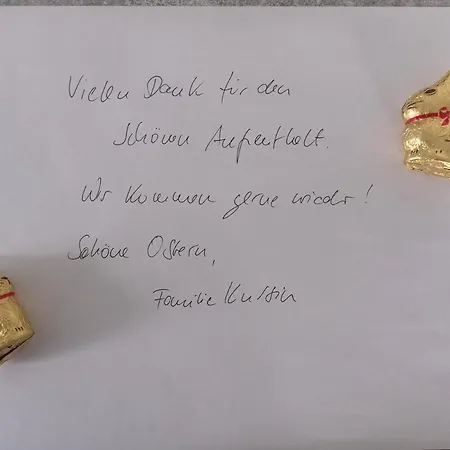 Vielen Dank für den
schönen Aufenthalt.
Wir kommen gerne wieder!
Schöne Ostern,
Familie